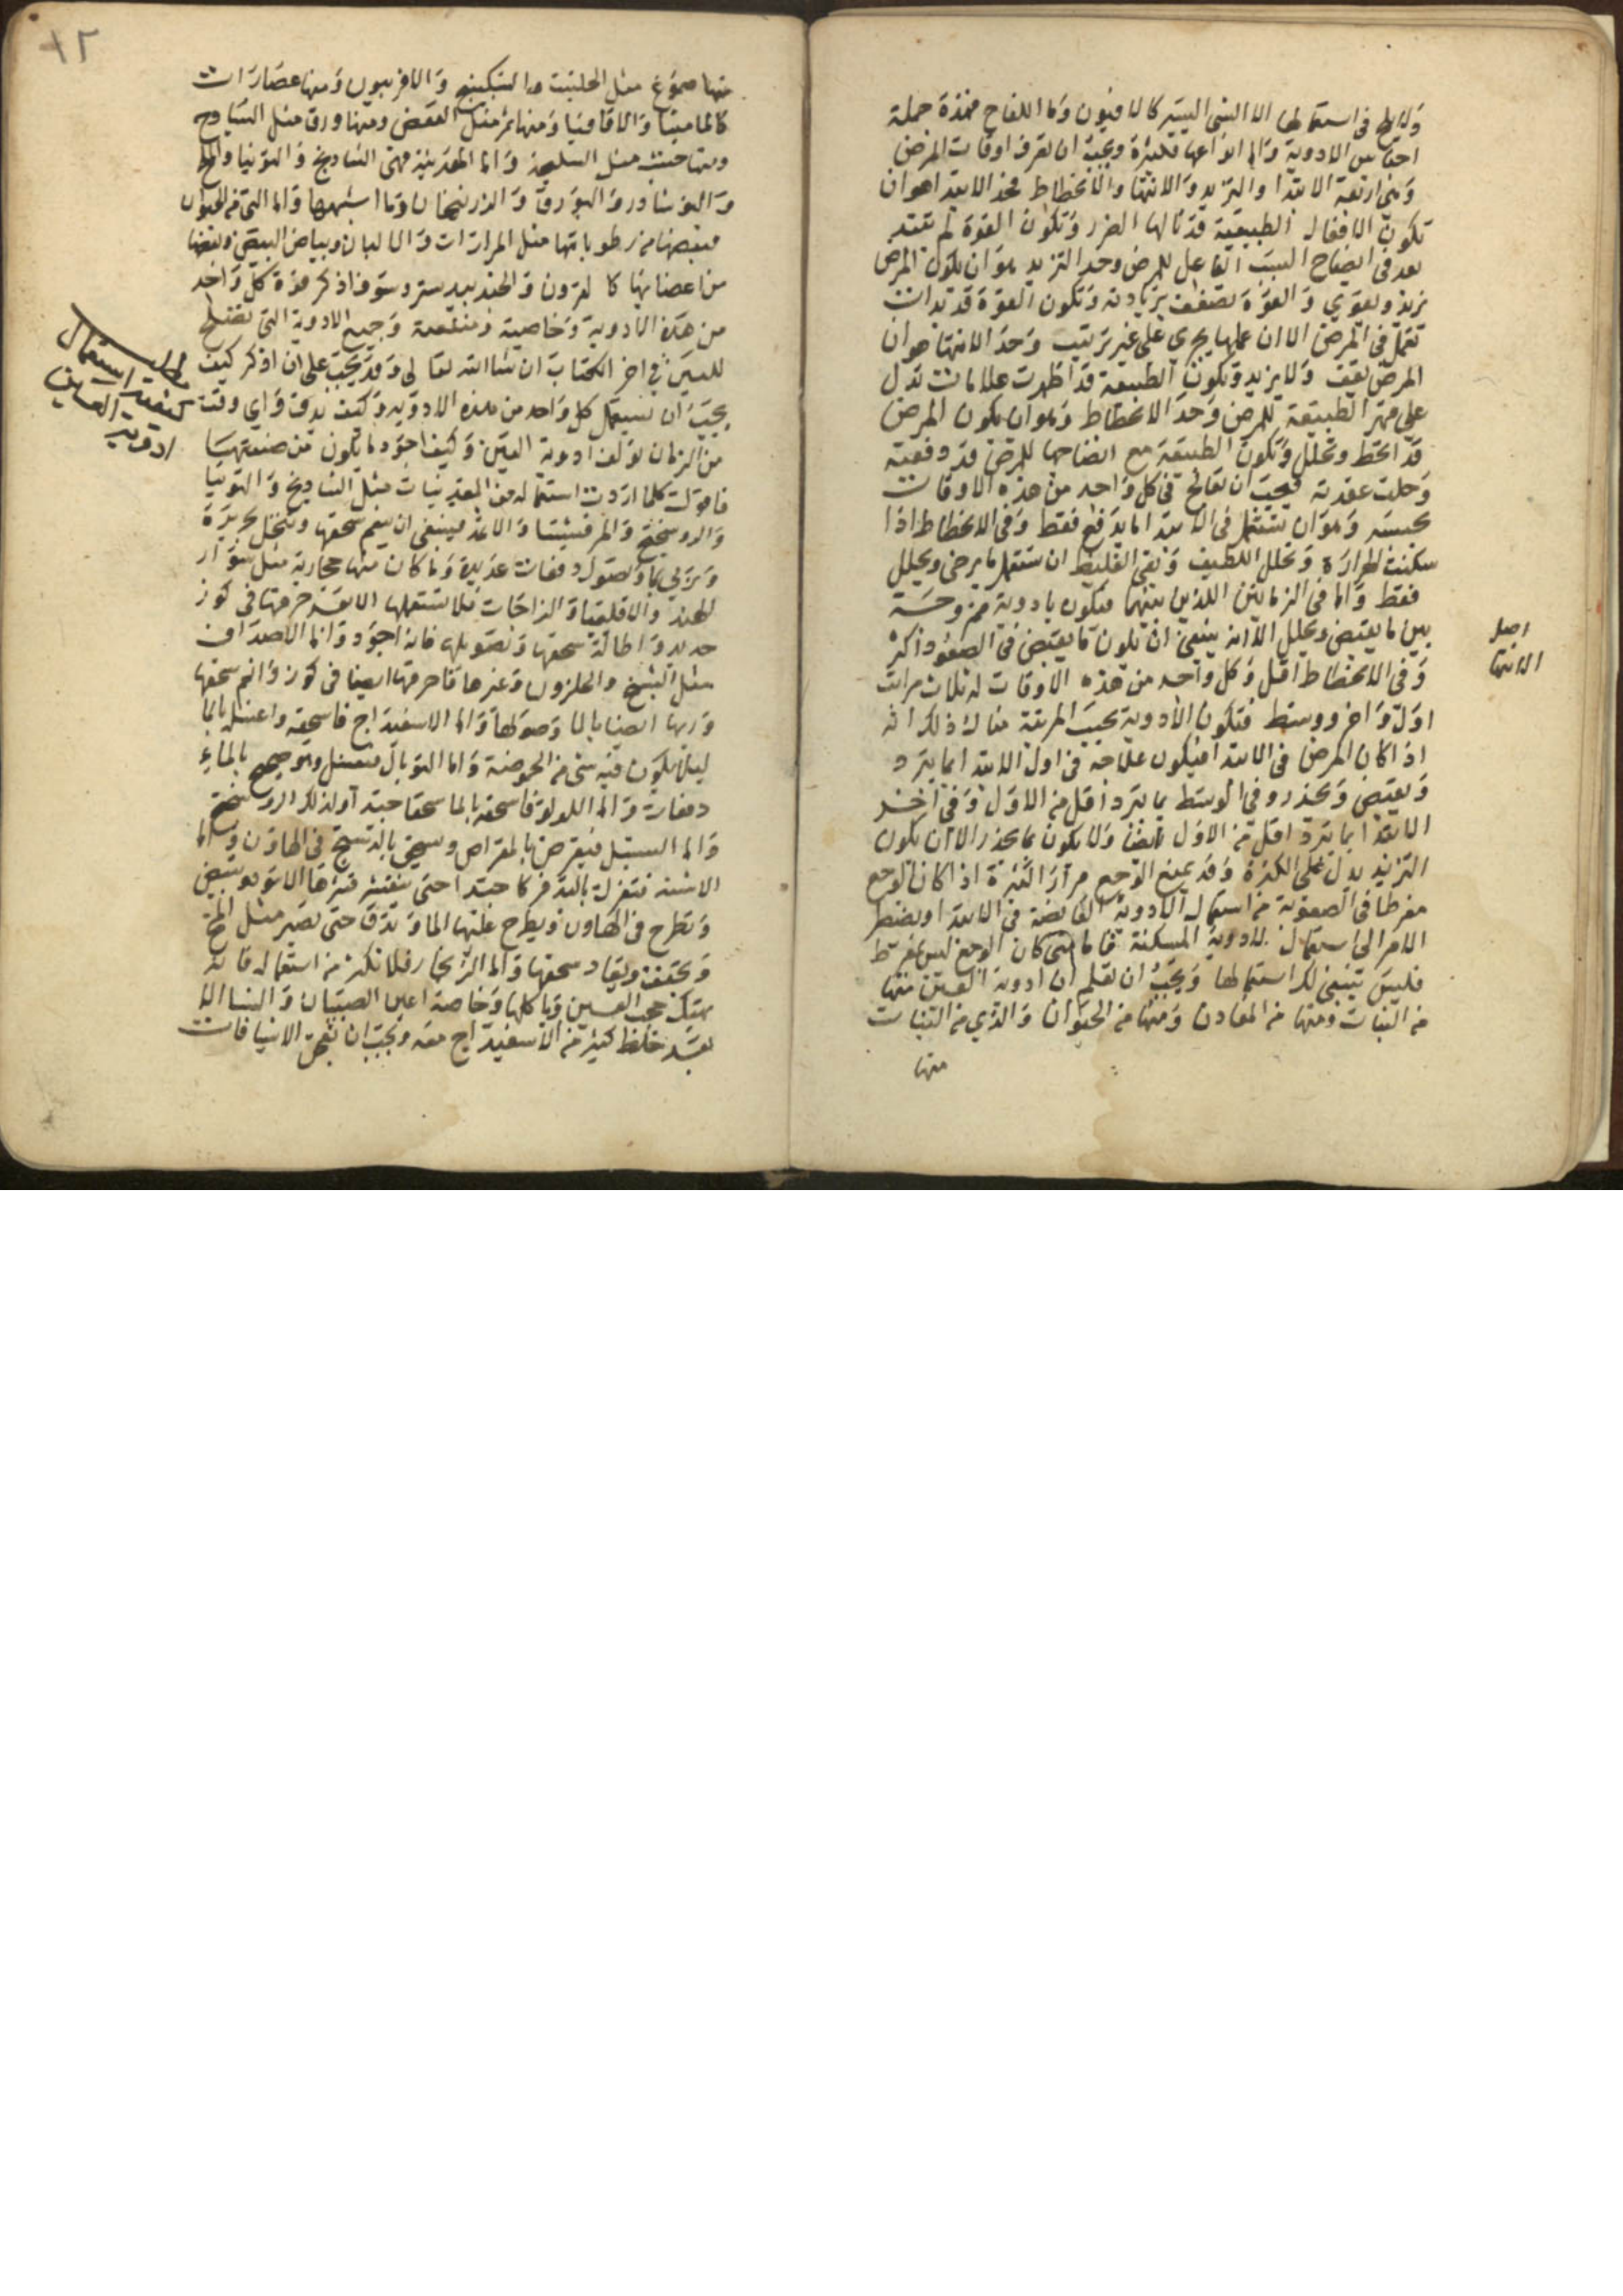 ولا يلح في استعمالها الا الشي اليسير كالافيون واما اللفاح فهذه جملة
اجناس الادوية واما انواعها فكثيرة ويجب ان تعرف اوقات المرض
وهي اربعة الابتدا والتزيد والانتها والانحطاط فحد الابتدا هو ان
تكون الافعال الطبيعية قد نالها الضرر وتكون القوة لم تبتد
بعد في انضاج السبب الفاعل للمرض وحد التزيد هو ان يكون المرض
يزيد ويقوي والقوة تضعف بزيادته وتكون القوة قد بدات
تعمل في المرض الا ان عملها يجري على غير ترتيب وحد الانتها هو ان
المرض يقف ولا يزيد وتكون الطبيعة قد اظهرت علامات تدل
على قهر الطبيعة للمرض وحد الانحطاط وهو ان يكون المرض
قد انحط وتحلل وتكون الطبيعة مع انضاجها للمرض قد دفعته
وحلت عقدته فيجب ان تعالج في كل واحد من هذه الاوقات
بحسبه وهو ان يستعمل في الابتدا ما يدفع فقط وفي الانحطاط اذا
سكنت الحرارة وتحلل اللطيف وبقي الغليظ ان تستعمل ما يرخي ويحلل
فقط واما في الزمانين اللذين بينهما فتكون بادوية ممزوجة
بين ما يقبض ويحلل الا انه ينبغي ان يكون ما يقبض في الصعود اكثر
وفي الانحطاط اقل وكل واحد من هذه الاوقات له ثلاث مراتب
اول واخر ووسط فتكون الادوية بحسب المرتبة مثال ذلك انه
اذا كان المرض في الابتدا فيكون علاجه في اول الابتدا بما يبرد
ويقبض ويخدر وفي الوسط بما يبرد اقل من الاول وفي اخر
الابتدا بما يبرد اقل من الاول ايضا ولا يكون بما يخدر الا ان يكون
التزيد يدل على الكثرة وقد يمنع الوجع مرارا كثيرة اذا كان الوجع
مفرطا في الصعوبة من استعمال الادوية القابضة في الابتدا ويضطر
الامر الى استعمال الادوية المسكنة فاما متى كان الوجع ليس بمفرط
فليس ينبغي لك استعمالها ويجب ان تعلم ان ادوية العين منها
من النبات ومنها من المعادن ومنها من الحيوان والذي من النبات
منها
اصل
الانتها
١٢
منها صموغ مثل الحلتيت والسكبينج والافربيون ومنها عصارات
كالماميثا والاقاقيا ومنها ثمر مثل العفص ومنها ورق مثل الساذج
ومنها خشب مثل السليخة واما المعدنية فهي الشاذنج والتوتيا والملح
والنوشادر والبورق والزرنيخان وما اشبهها واما التي من الحيوان
فبعضها من رطوباتها مثل المرارات والالبان وبياض البيض وبعضها
من اعضائها كالقرون والجندبيدستر وسوف اذكر قوة كل واحد
من هذه الادوية وخاصية ومنفعته وجميع الادوية التي تصلح
للعين في اخر الكتاب ان شا الله تعالى وقد يجب على ان اذكر كيف
يجب ان تستعمل كل واحد من هذه الادوية وكيف يدق واي وقت
من الزمان تولف ادوية العين وكيف اجود ما يكون من صنعتها
فاقول كلما اردت استعماله من المعدنيات مثل الشاذنج والتوتيا
والروسختج والمرقشيثا والاثمد فينبغي ان ينعم سحقها وينخل بحريرة
ويربي بما وتصول دفعات عديدة وما كان منها حجارية مثل سوار
الهند والاقليميا والزاجات فلا تستعملها الا بعد حرقها في كوز
حديد واطالة سحقها وتصويلها فانه اجود واما الاصداف
مثل الشنج والحلزون وغيرها فاحرقها ايضا في كوز وانعم سحقها
وربها ايضا بالما وصولها واما الاسفيداج فاسحقه واغسله بالما
ليلا يكون فيه شي من الحموضة واما التوبال فيغسل بالماء
دفعات واما اللولو فاسحقه بالما سحقا جيدا وكذلك الروسختج
واما السنبل فيقرض بالمقراض ويسحق في الهاون واما
الاشنه فتعزل باليد فركا جيدا حتى ينقشر قشرها الاسود ويبيض
وتطرح في الهاون ويطرح عليها الما وتدق حتى تصير مثل المخ
وتجفف ويعاد سحقها واما الزنجار فلا تكثر من استعماله فانه
يهتك حجب العين وياكلها وخاصة اعين الصبيان والنسا الا
بعد خلط كثير من الاسفيداج معه ويجب ان تعجن الاشيافات
مطلب استعمال
كيفية
ادوية العين